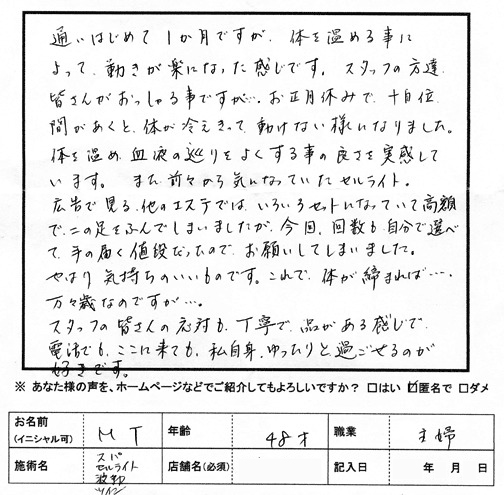 通いはじめて1か月ですが、体を温める事に
よって、動きが楽になった感じです。スタッフの方達
皆さんがおっしゃる事ですが…お正月休みで、十日位
間があくと、体が冷えきって、動けない様になりました。
体を温め血液の巡りをよくする事の良さを実感して
います。また前々から気になっていたセルライト。
広告で見る、他のエステでは、いろいろセットになっていて高額
で、二の足をふんでしまいましたが、今回、回数も自分で選べ
て、手の届く値段だったので、お願いしてしまいました。
やはり気持ちのいいものです。これで、体が締まれば…、
万々歳なのですが…。
スタッフの皆さんの応対も、丁寧で、品がある感じで、
電話でも、ここに来ても、私自身、ゆったりと過ごせるのが
好きです。
※ あなた様の声を、ホームページなどでご紹介してもよろしいですか? □はい ☑匿名で □ダメ
お名前(イニシャル可) M T 年齢 48才 職業 主婦
施術名 スパ セルライト 波動 ツイン 店舗名(必須) 記入日 年 月 日